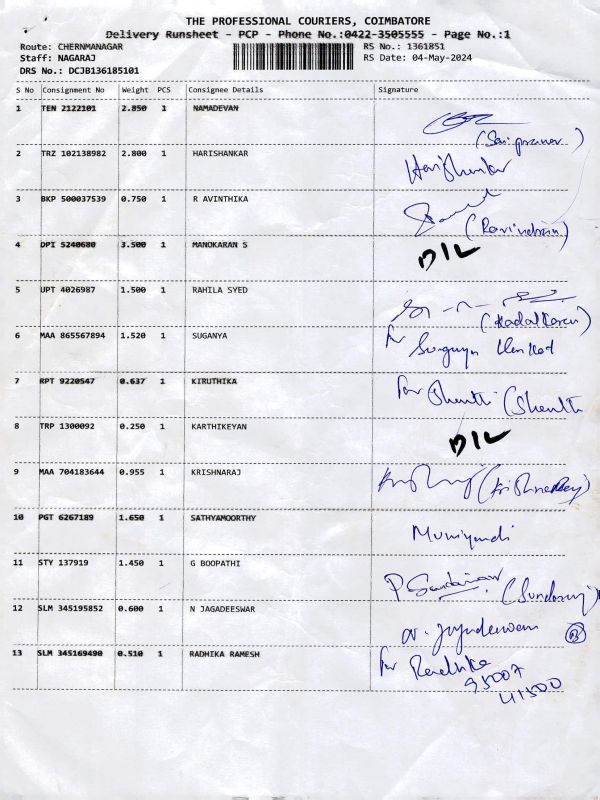 THE PROFESSIONAL COURIERS, COIMBATORE
Delivery Runsheet - PCP - Phone No.:0422-3505555 - Page No.:1
Route: CHERNMANAGAR RS No.: 1361851
Staff: NAGARAJ RS Date: 04-May-2024
DRS No.: DCJB136185101
S No Consignment No Weight PCS Consignee Details Signature
1 TEN 2122101 2.850 1 NAMADEVAN
(Saipranav)
2 TRZ 102138982 2.800 1 HARISHANKAR Harishankar
3 BKP 500037539 0.750 1 R AVINTHIKA
(Ravindran)
4 DPI 5240680 3.500 1 MANOKARAN S D/L
5 UPT 4026987 1.500 1 RAHILA SYED
(Kadalkaran)
6 MAA 865567894 1.520 1 SUGANYA for Suganya
7 RPT 9220547 0.637 1 KIRUTHIKA for Shanthi (Shanthi
8 TRP 1300092 0.250 1 KARTHIKEYAN D/L
9 MAA 704183644 0.955 1 KRISHNARAJ (Krishnaraj)
10 PGT 6267189 1.650 1 SATHYAMOORTHY Muniyandi
11 STY 137919 1.450 1 G BOOPATHI P (Sundaraj)
12 SLM 345195852 0.600 1 N JAGADEESWAR N. Jagadeeswaran
13 SLM 345169490 0.510 1 RADHIKA RAMESH for Radhika
95007
41500